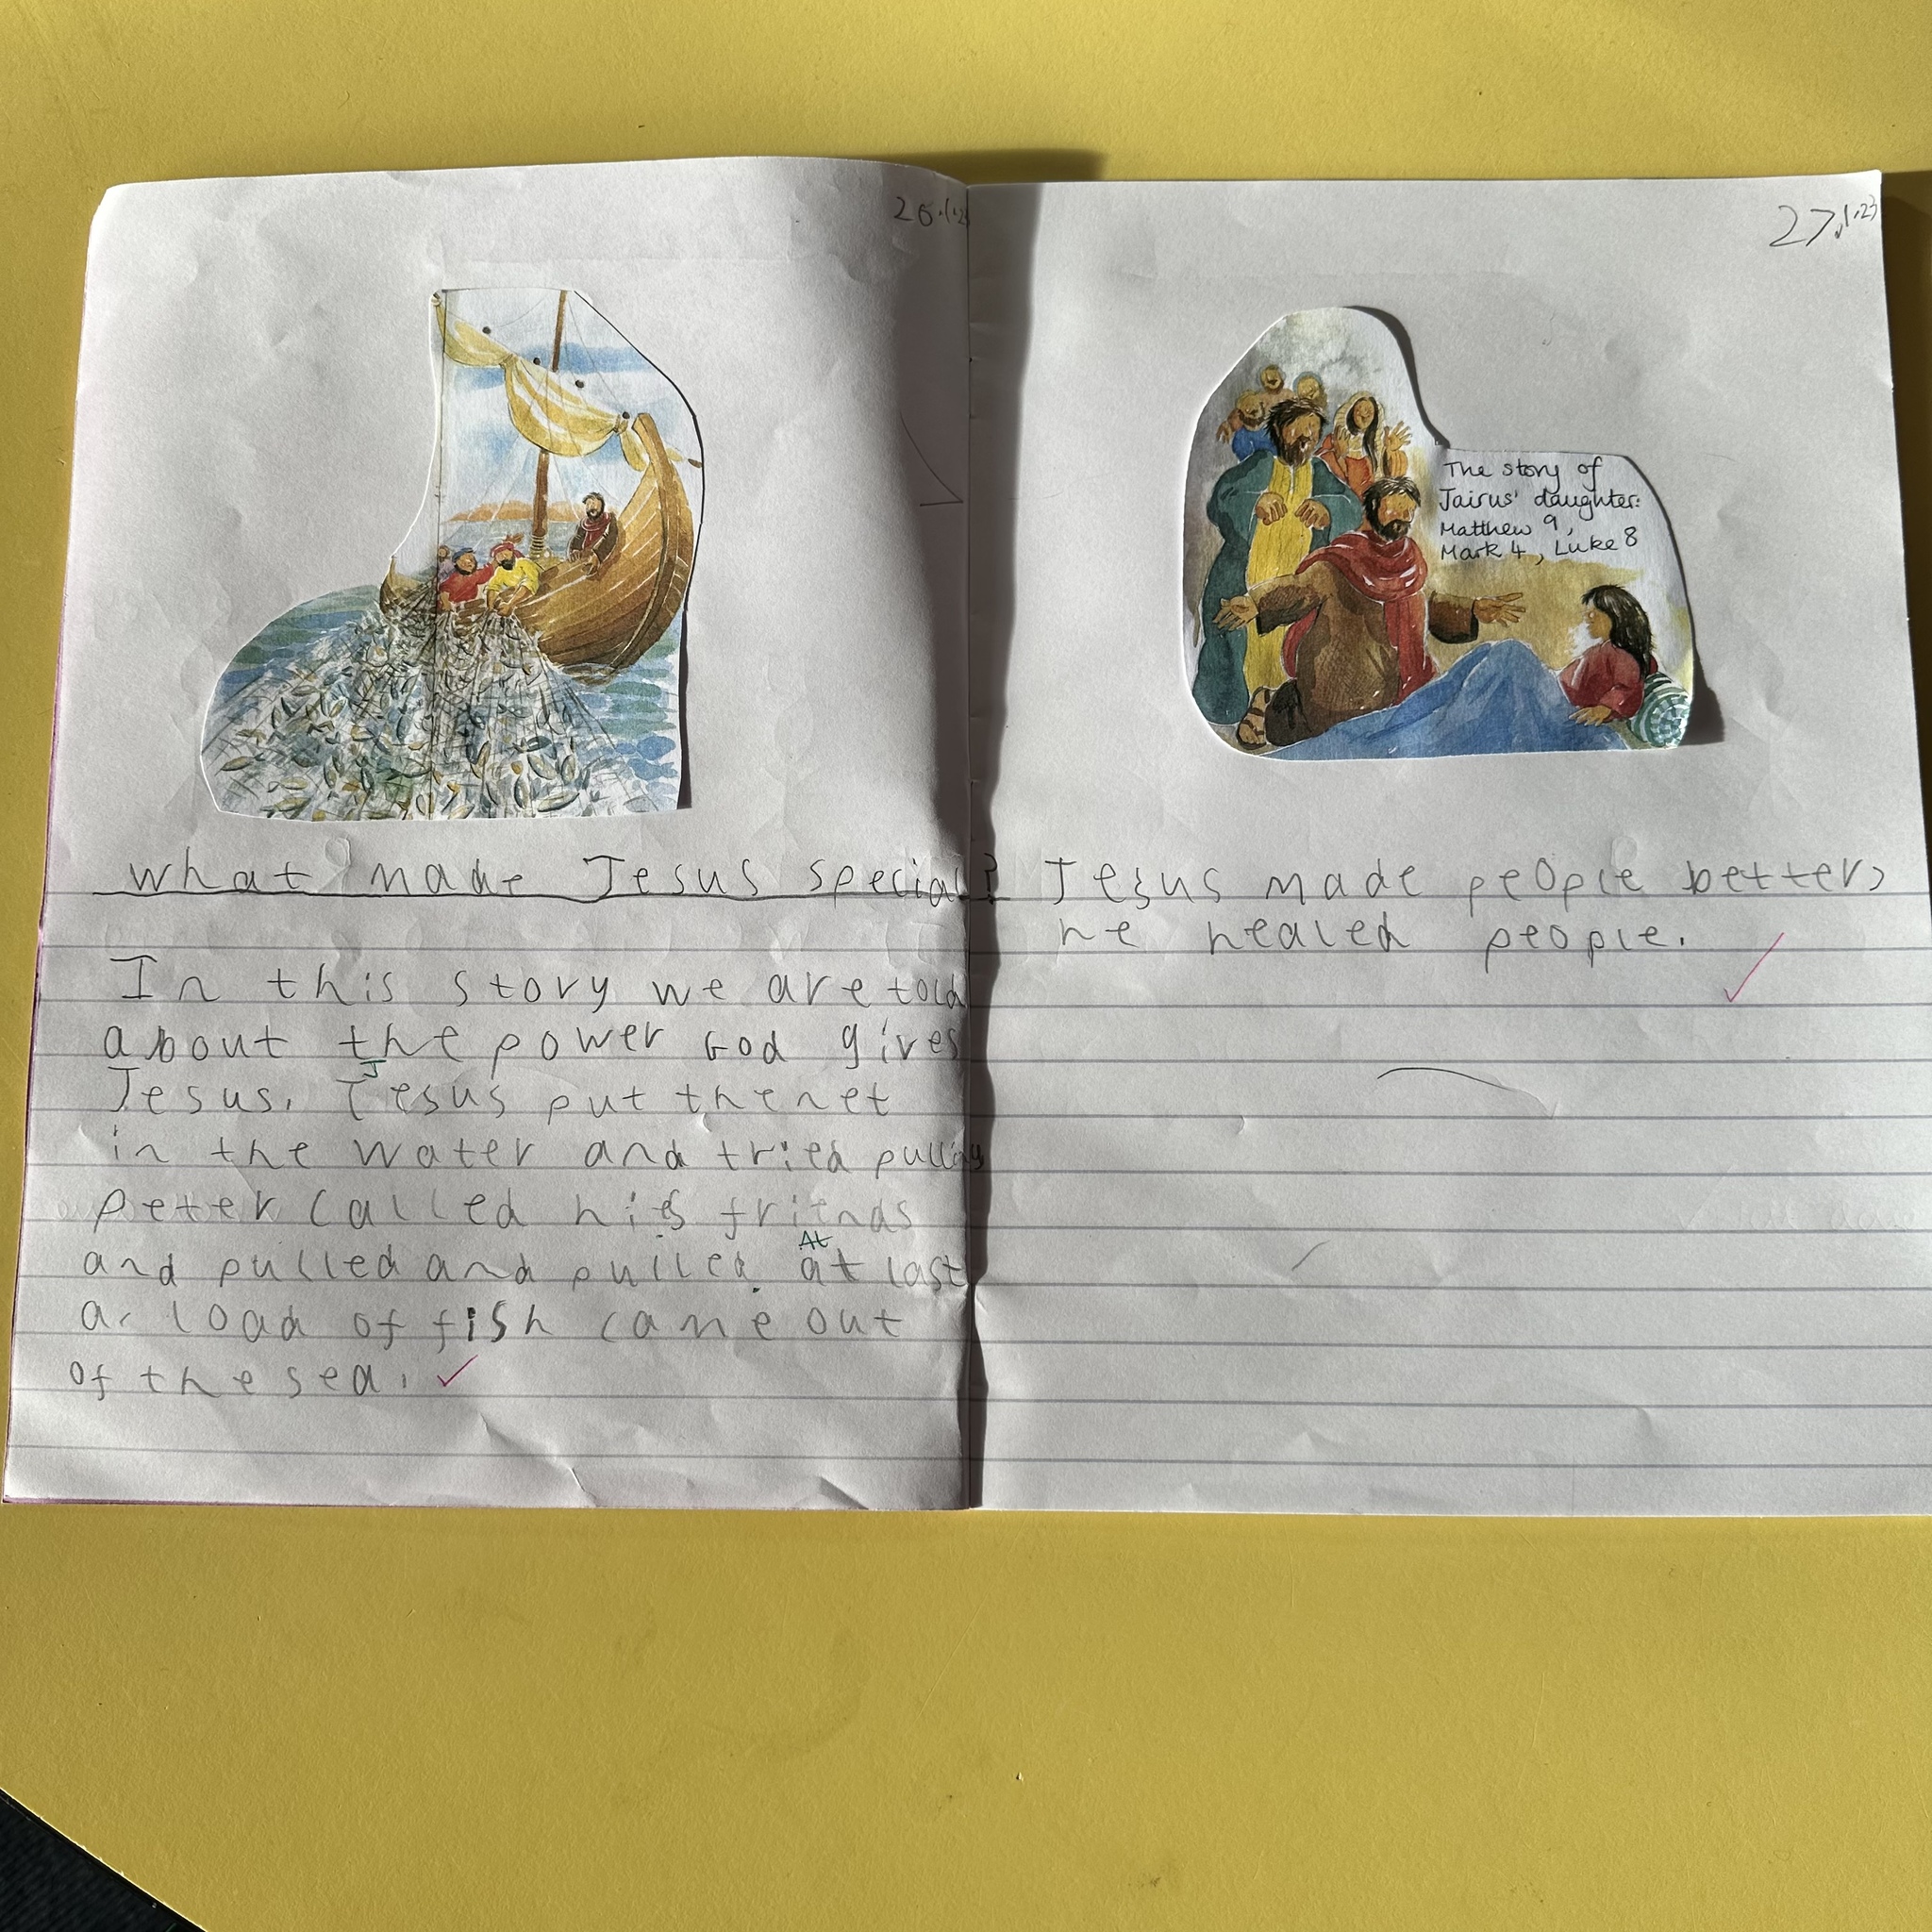 26.1.23
What made Jesus special?
In this story we are told
about the power God gives
J
Jesus. Jesus put the net
in the water and tried pulling
peter called his friends
At
and pulled and pulled. at last
a load of fish came out
of the sea.
27.1.23
The story of
Jairus' daughter:
Matthew 9,
Mark 4, Luke 8
Jesus made people better,
he healed people.